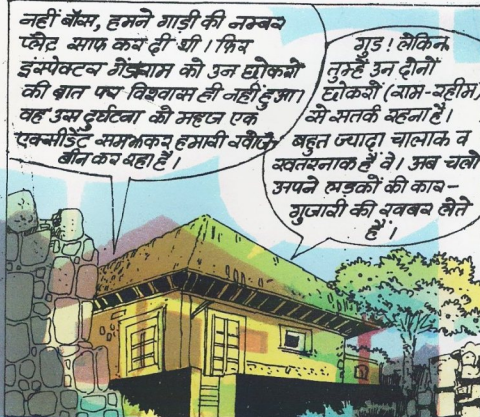 नहीं बॉस, हमने गाड़ी की नम्बर
प्लेट साफ कर दी थी। फिर
इंस्पेक्टर गेंडाराम को उन छोकरों
की बात पर विश्वास ही नहीं हुआ।
वह उस दुर्घटना को महज एक
एक्सीडेंट समझकर हमारी खोज-
बीन कर रहा है।
गुड! लेकिन
तुम्हें उन दोनों
छोकरों (राम-रहीम)
से सतर्क रहना है।
बहुत ज्यादा चालाक व
खतरनाक हैं वे। अब चलो
अपने लड़कों की कार-
गुजारी की खबर लेते
हैं।